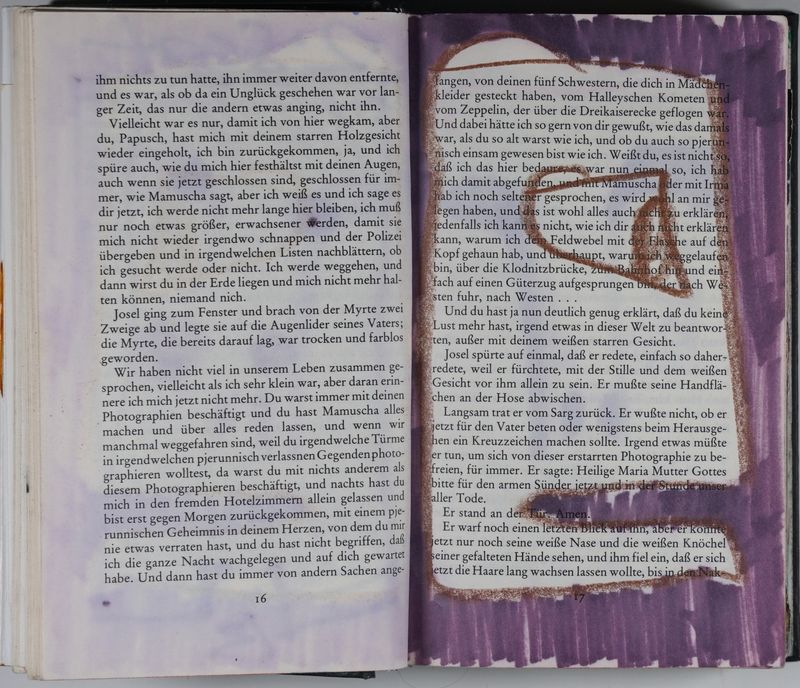 ihm nichts zu tun hatte, ihn immer weiter davon entfernte,
und es war, als ob da ein Unglück geschehen war vor lan-
ger Zeit, das nur die andern etwas anging, nicht ihn.
Vielleicht war es nur, damit ich von hier wegkam, aber
du, Papusch, hast mich mit deinem starren Holzgesicht
wieder eingeholt, ich bin zurückgekommen, ja, und ich
spüre auch, wie du mich hier festhältst mit deinen Augen,
auch wenn sie jetzt geschlossen sind, geschlossen für im-
mer, wie Mamuscha sagt, aber ich weiß es und ich sage es
dir jetzt, ich werde nicht mehr lange hier bleiben, ich muß
nur noch etwas größer, erwachsener werden, damit sie
mich nicht wieder irgendwo schnappen und der Polizei
übergeben und in irgendwelchen Listen nachblättern, ob
ich gesucht werde oder nicht. Ich werde weggehen, und
dann wirst du in der Erde liegen und mich nicht mehr hal-
ten können, niemand nich.
Josel ging zum Fenster und brach von der Myrte zwei
Zweige ab und legte sie auf die Augenlider seines Vaters;
die Myrte, die bereits darauf lag, war trocken und farblos
geworden.
Wir haben nicht viel in unserem Leben zusammen ge-
sprochen, vielleicht als ich sehr klein war, aber daran erin-
nere ich mich jetzt nicht mehr. Du warst immer mit deinen
Photographien beschäftigt und du hast Mamuscha alles
machen und über alles reden lassen, und wenn wir
manchmal weggefahren sind, weil du irgendwelche Türme
in irgendwelchen pjerunnisch verlassnen Gegenden photo-
graphieren wolltest, da warst du mit nichts anderem als
diesem Photographieren beschäftigt, und nachts hast du
mich in den fremden Hotelzimmern allein gelassen und
bist erst gegen Morgen zurückgekommen, mit einem pje-
runnischen Geheimnis in deinem Herzen, von dem du mir
nie etwas verraten hast, und du hast nicht begriffen, daß
ich die ganze Nacht wachgelegen und auf dich gewartet
habe. Und dann hast du immer von andern Sachen ange-
16
fangen, von deinen fünf Schwestern, die dich in Mädchen-
kleider gesteckt haben, vom Halleyschen Kometen und
vom Zeppelin, der über die Dreikaiserecke geflogen war.
Und dabei hätte ich so gern von dir gewußt, wie das damals
war, als du so alt warst wie ich, und ob du auch so pjerun-
nisch einsam gewesen bist wie ich. Weißt du, es ist nicht so,
daß ich das hier bedaure, es war nun einmal so, ich hab
mich damit abgefunden, und mit Mamuscha oder mit Irma
hab ich noch seltener gesprochen, es wird wohl an mir ge-
legen haben, und das ist wohl alles auch nicht zu erklären,
jedenfalls ich kann es nicht, wie ich dir auch nicht erklären
kann, warum ich den Feldwebel mit der Flasche auf den
Kopf gehaun hab, und überhaupt, warum ich weggelaufen
bin, über die Klodnitzbrücke, zum Bahnhof hin und ein-
fach auf einen Güterzug aufgesprungen bin, der nach We-
sten fuhr, nach Westen . . .
Und du hast ja nun deutlich genug erklärt, daß du keine
Lust mehr hast, irgend etwas in dieser Welt zu beantwor-
ten, außer mit deinem weißen starren Gesicht.
Josel spürte auf einmal, daß er redete, einfach so daher-
redete, weil er fürchtete, mit der Stille und dem weißen
Gesicht vor ihm allein zu sein. Er mußte seine Handflä-
chen an der Hose abwischen.
Langsam trat er vom Sarg zurück. Er wußte nicht, ob er
jetzt für den Vater beten oder wenigstens beim Herausge-
hen ein Kreuzzeichen machen sollte. Irgend etwas müßte
er tun, um sich von dieser erstarrten Photographie zu be-
freien, für immer. Er sagte: Heilige Maria Mutter Gottes
bitte für den armen Sünder jetzt und in der Stunde unser
aller Tode.
Er stand an der Tür. Amen.
Er warf noch einen letzten Blick auf ihn, aber er konnte
jetzt nur noch seine weiße Nase und die weißen Knöchel
seiner gefalteten Hände sehen, und ihm fiel ein, daß er sich
jetzt die Haare lang wachsen lassen wollte, bis in den Nak-
17